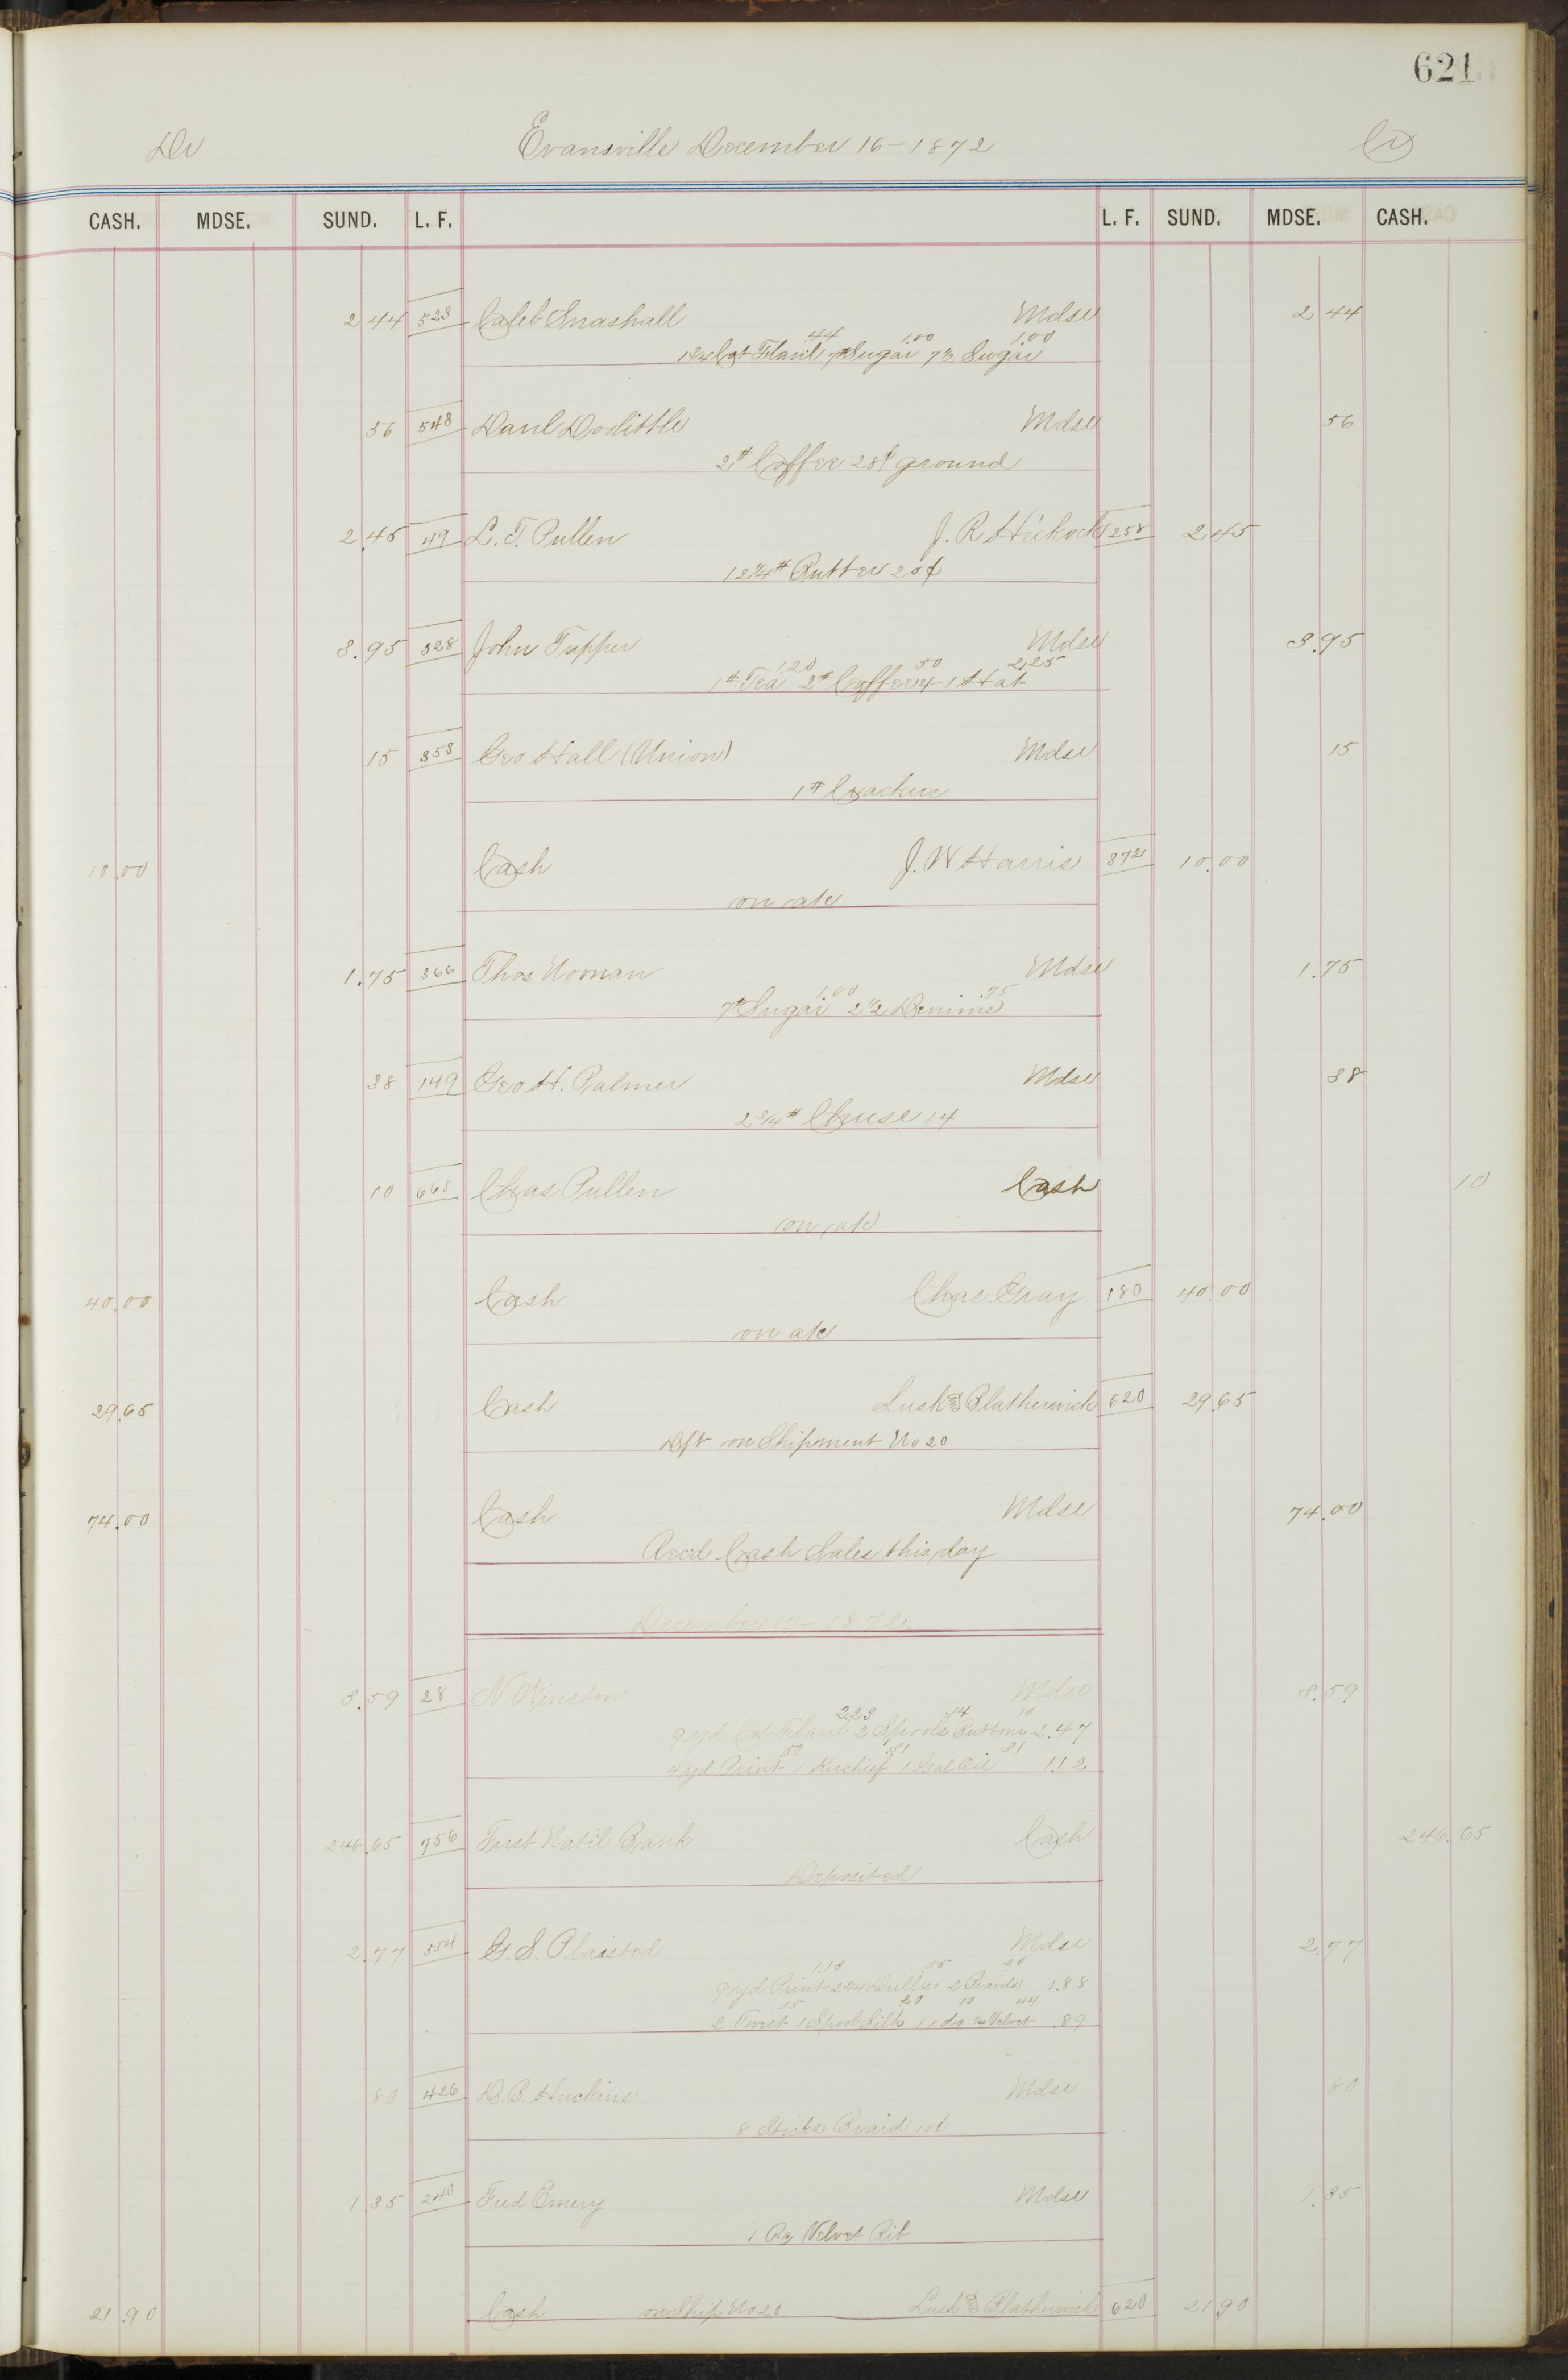 621
Dr Evansville December 16 - 1872 Cr
CASH. MDSE. SUND. L. F. L. F. SUND. MDSE. CASH.
2 44 523 Caleb Snashall Mdse 2 44
.44 1.00 1.00
Cot Flanl 7# Sugar 7# Sugar
56 548 Danl Doolittle Mdse 56
2# Coffee 28¢ ground
2.45 49 L. T. Pullen J. R Hickock 258 2 45
12 1/4# Butter 20¢
3.95 328 John Tupper Mdse 3.95
1.20 50 2.25
1# Tea 2# Coffee 1 Hat
15 353 Geo Hall (Union) Mdse 15
1# Crackers
10.00 Cash J. W Harris 372 10.00
on a/c
1.75 366 Thos Noonan Mdse 1.75
1.00 .75
7# Sugar 2 1/2 Denims
38 149 Geo H. Palmer Mdse 38
2 3/4# Cheese 14
10 665 Chas Pullen Cash 10
on a/c
40.00 Cash Chas Gray 180 40.00
on a/c
29.65 Cash Lusk & Blatherwick 620 29.65
Dft on Shipment No 20
74.00 Cash Mdse 74.00
Recd Cash Sales this day
December 17 - 1872
3.59 28 N. Winston Mdse 3.59
2.23 .14 10
9 yd Cot Flanl 2 Spools Buttons 2.47
.50 .31 31
4 yd Print 1 Kerchief 1 Gal Oil 1.12
246.65 756 First Natil Bank Cash 246.65
Deposited
2.77 354 G. S. Plaisted Mdse 2.77
1.13 .55 20
9 yd Print 2 3/4 Drill 20 2 Braids 1.88
.15 20 10 44
2 Twist 1 Spool Silk 1 do Velvet .89
80 426 D. B. Huchins Mdse 80
8 Sticks Braid 10¢
1.35 240 Fred Emery Mdse 1.35
1 Pc Velvet Rib
21.90 Cash on Ship No 20 Lusk & Blatherwick 620 21 90